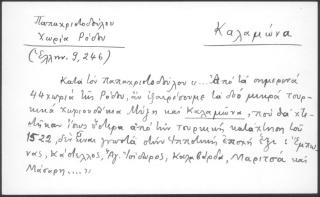 Παπαχριστοδούλου
Χωριά Ρόδου
Καλαμώνα
(Ἑλλην. 9, 246)
Κατά τόν Παπαχριστοδούλου «... Ἀπό τά σημερινά
44 χωριά τῆς Ρόδου, ἄν ἐξαιρέσουμε τά δυό μικρά τουρ-
κικά χωριουδάκια Μίξη καί Καλαμώνα, πού θά χτί-
στηκαν ἴσως ὕστερα ἀπό τήν τουρκική κατάχτηση τοῦ
1522, δέν εἶναι γνωστά στήν Ἱπποτική ἐποχή ἕξι: Ἔμπω-
νας, Κάστελλος, Ἁγ. Ἰσίδωρος, Καλαβάρδα, Μαριτσά καί
Μάσαρη....»